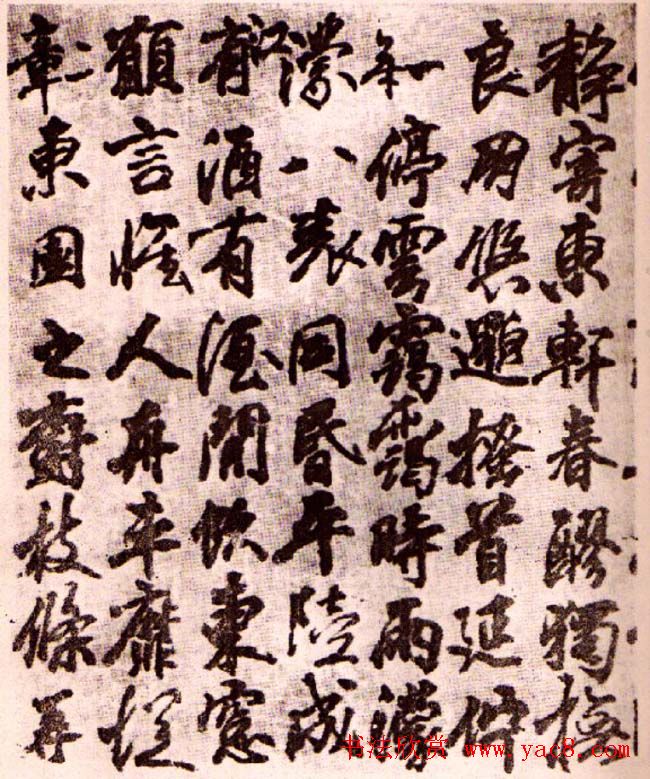 靜寄東軒春醪獨撫
良朋悠邈搔首延佇
停雲靄靄時雨濛
濛八表同昏平陸成
江有酒有酒閒飲東窻
願言懷人舟車靡從
章東園之樹枝條再
书法欣赏 www.yac8.com